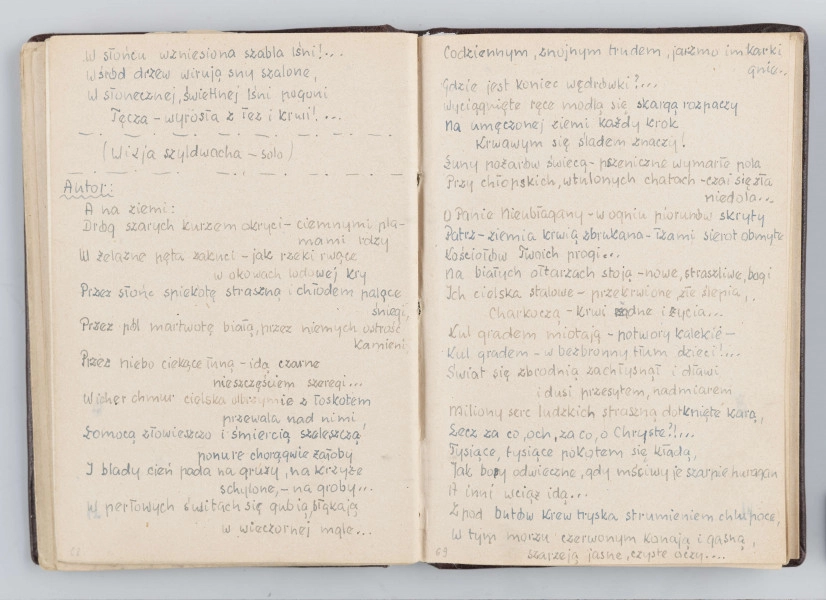 W słońcu wzniesiona szabla lśni!...
Wśród drzew wirują sny szalone,
W słonecznej, świetlnej lśni pogoni
Tęcza – wyrosła z łez i krwi!...
(Wizja szyldwacha – solo)
Autor:
A na ziemi:
Dróg szarych kurzem okryci – ciemnymi pla-
mami rdzy
W żelazne pęta zakuci – jak rzeki rwące
w okowach lodowej kry
Przez słońc spiekotę straszną i chłodem palące
śniegi,
Przez pól martwotę białą, przez niemych ostrość
kamieni,
Przez niebo ciekące łuną – idą czarne
nieszczęściem szeregi...
Wicher chmur cielska olbrzymie z łoskotem
przewala nad nimi,
Łomocą złowieszczo i śmiercią szeleszczą
ponure chorągwie żałoby
I blady cień pada na gruzy, na krzyże
schylone, – na groby...
W perłowych świtach się gubią, błąkają
w wieczornej mgle...
Codziennym, znojnym trudem, jarzmo im karki
gnie...
Gdzie jest koniec wędrówki?...
Wyciągnięte ręce modlą się skargą rozpaczy
Na umęczonej ziemi każdy krok
Krwawym się śladem znaczy!
Łuny pożarów świecą – pszeniczne wymarłe pola
Przy chłopskich, wtulonych chatach – czai się zła
niedola...
O Panie Nieubłagany – w ogniu piorunów skryty
Patrz – ziemia krwią zbrukana – łzami sierot obmyte
Kościołów Twoich progi...
Na białych ołtarzach stoją – nowe, straszliwe, bogi
Ich cielska stalowe – przekrwione, złe ślepia,
Charkoczą – krwi żądne i życia...
Kul gradem miotają – potwory kalekie –
Kul gradem – w bezbronny tłum dzieci!...
Świat się zbrodnią zachłysnął i dławi
i dusi przesytem, nadmiarem
Miliony serc ludzkich straszną dotknięte karą,
Lecz za co, och, za co, o Chryste?!...
Tysiące, tysiące pokotem się kładą,
Jak bory odwieczne, gdy mściwy je szarpie huragan
A inni wciąż idą...
Z pod butów krew tryska strumieniem chlupoce,
W tym morzu czerwonym konają i gasną,
szarzeją jasne, czyste oczy....
63